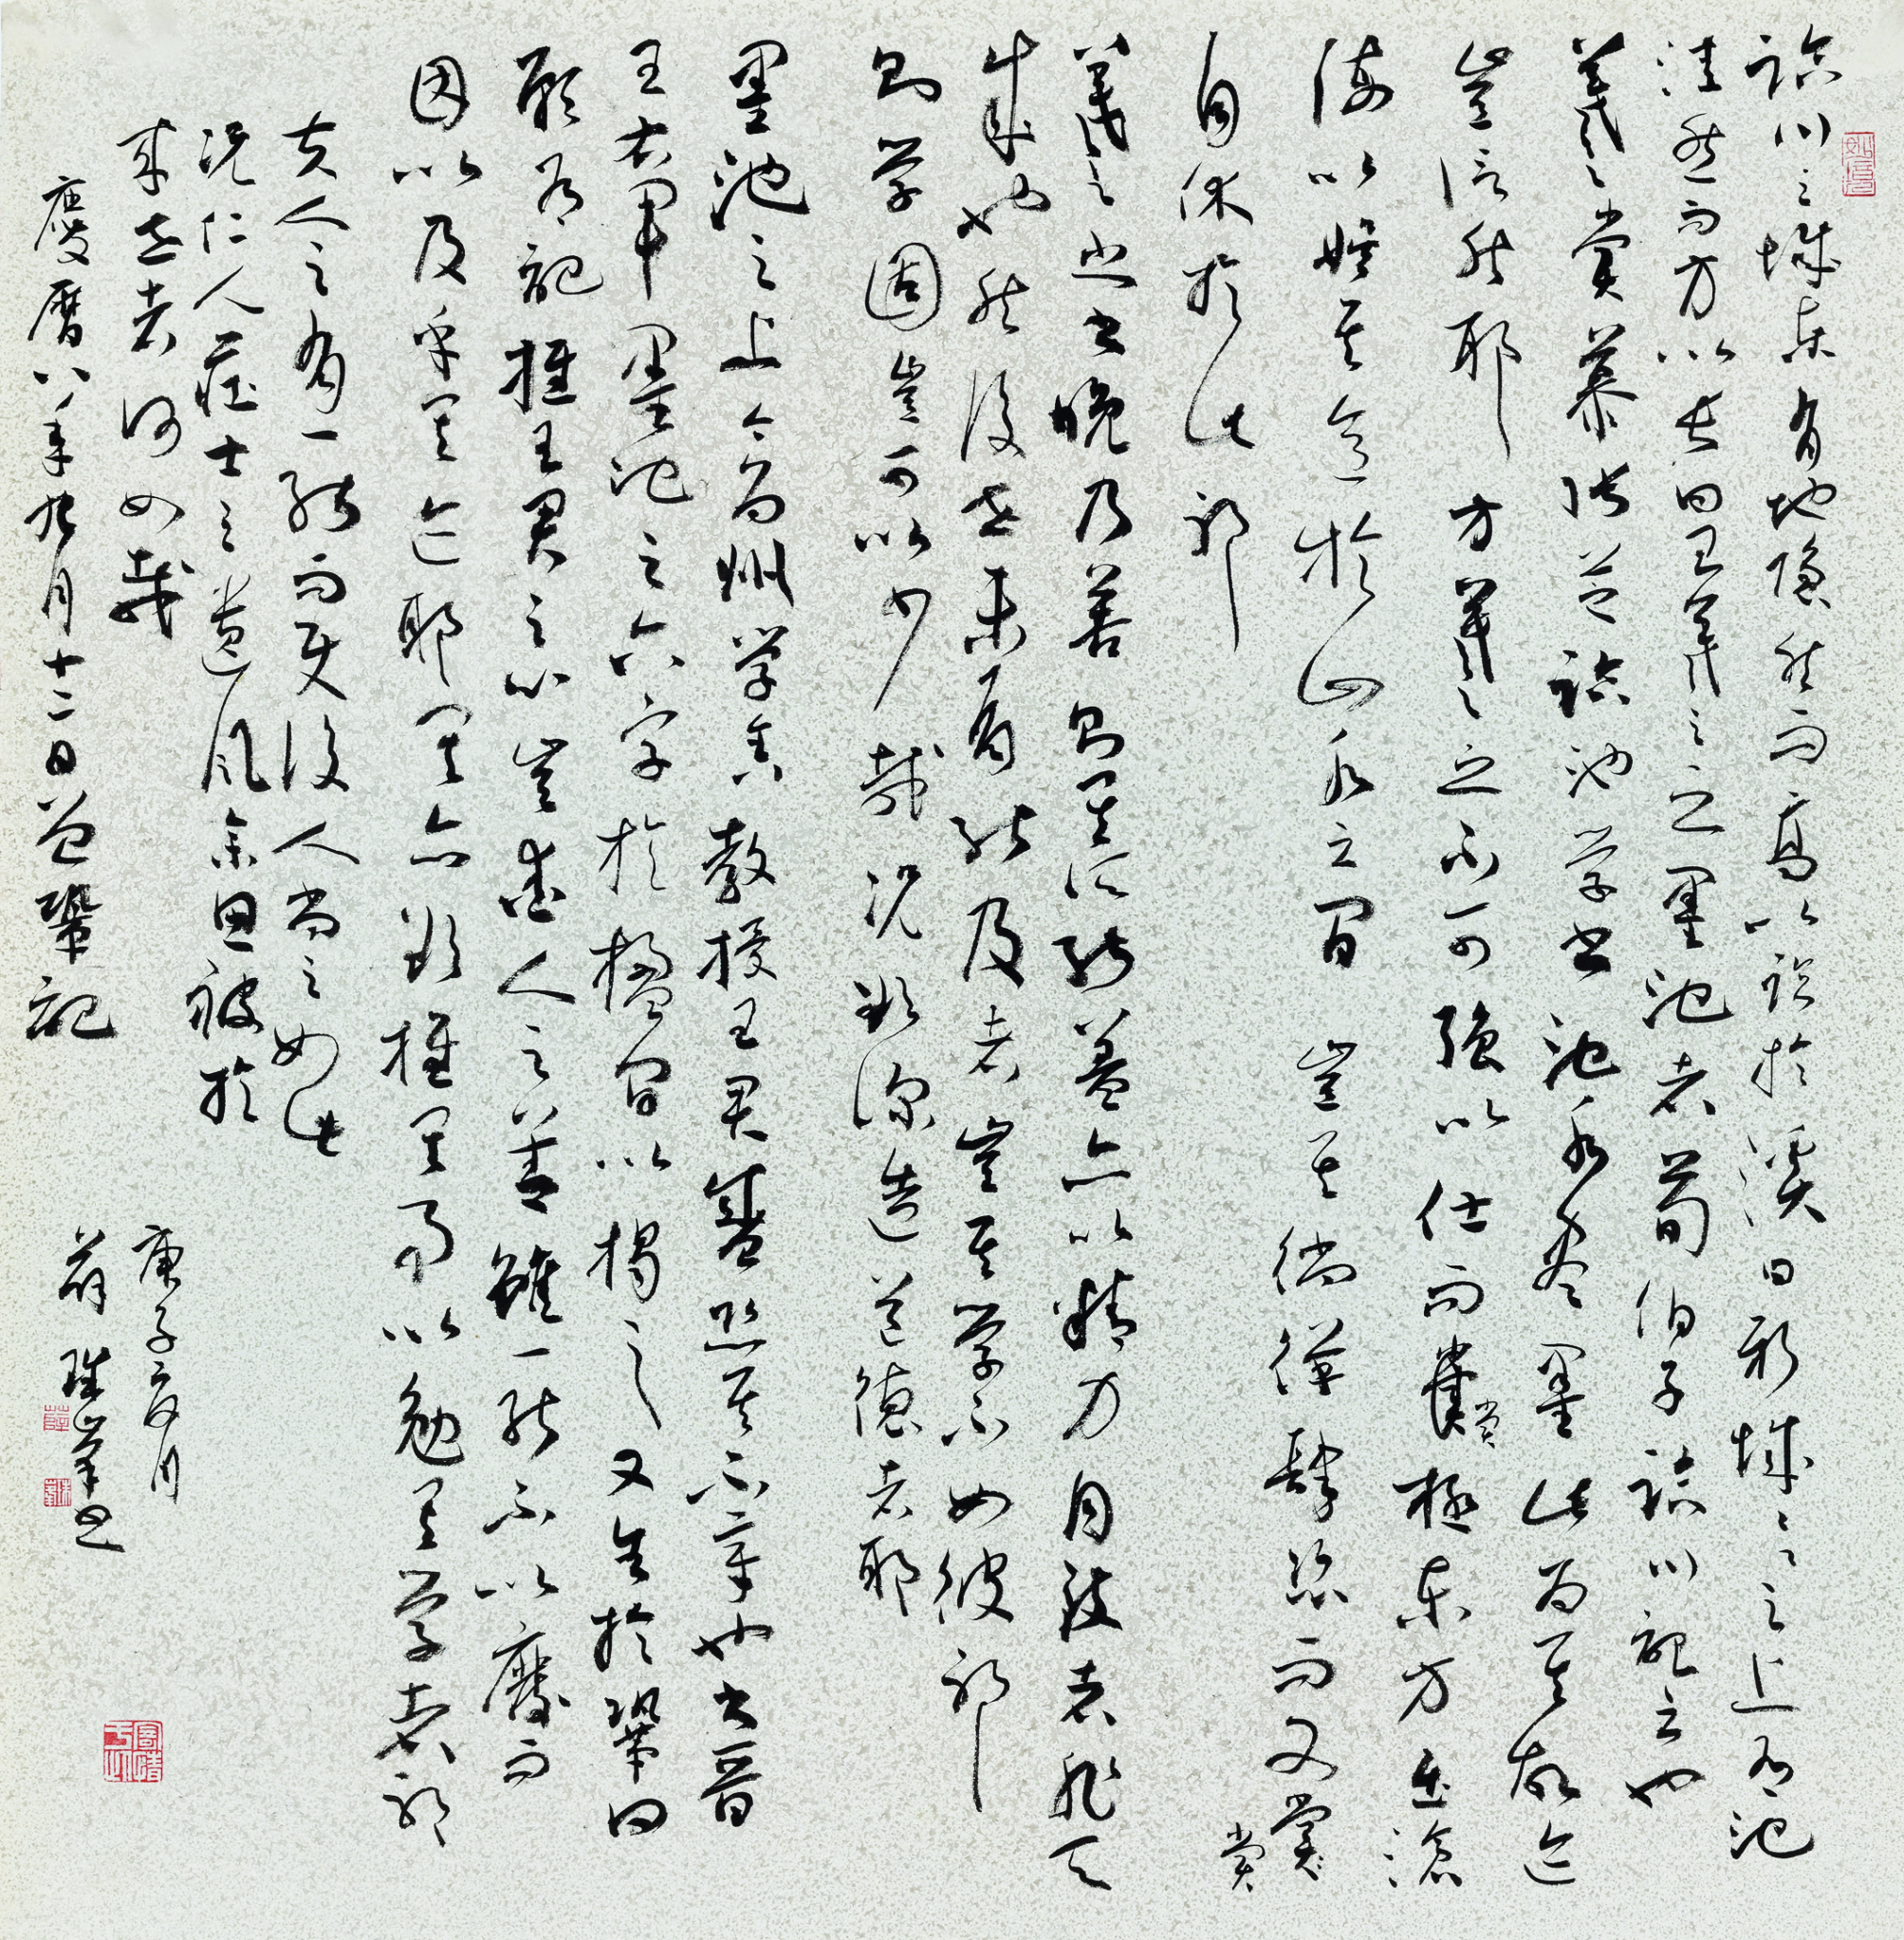 临川之城东有地隐然而高以临於溪曰新城〻之上有池
洼然而方以长曰王羲之之墨池者荀伯子临川記云也
羲之尝慕张芝临池学书池水尽墨此为其故迹
岂信然耶方羲之之不可强以仕而尝极东方出滄
海以娱其意於山水之间岂其徜徉肆恣而又尝
自休於此邪
羲之之书晚乃善则其所能盖亦以精力自致者非天
成也然後世未有能及者岂其学不如彼邪
则学固岂可以少哉况欲深造道德者耶
墨池之上今为州学舍教授王君盛恐其不章也书晋
王右军墨池之六字於楹间以揭之又告於鞏曰
愿有記推王君之心岂爱人之善雖一能不以廢而
因以及乎其迹耶其亦欲推其事以勉其学者邪
夫人之有一能而使後人尚之如此
况仁人莊士之遗风余思被於
来世者何如哉
慶曆八年九月十二日曾鞏記
庚子夏月
薛珠峯书